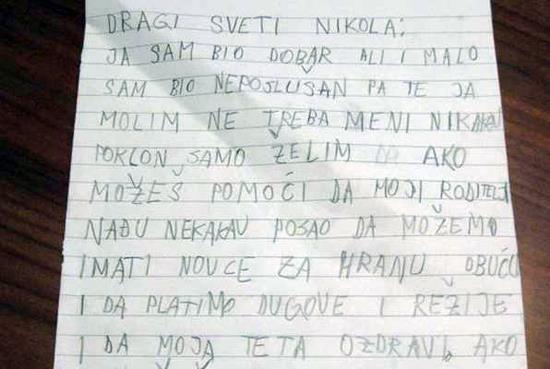 DRAGI SVETI NIKOLA:
JA SAM BIO DOBAR ALI I MALO
SAM BIO NEPOSLUSAN PA TE JA
MOLIM NE TREBA MENI NIKAKAV
POKLON, SAMO ŽELIM DA AKO
MOŽEŠ POMOĆI DA MOJI RODITELJI
NAĐU NEKAKAV POSAO DA MOŽEMO
IMATI NOVCE ZA HRANU, OBUĆU
I DA PLATIMO DUGOVE I REŽIJE
I DA MOJA TETA OZDRAVI, AKO